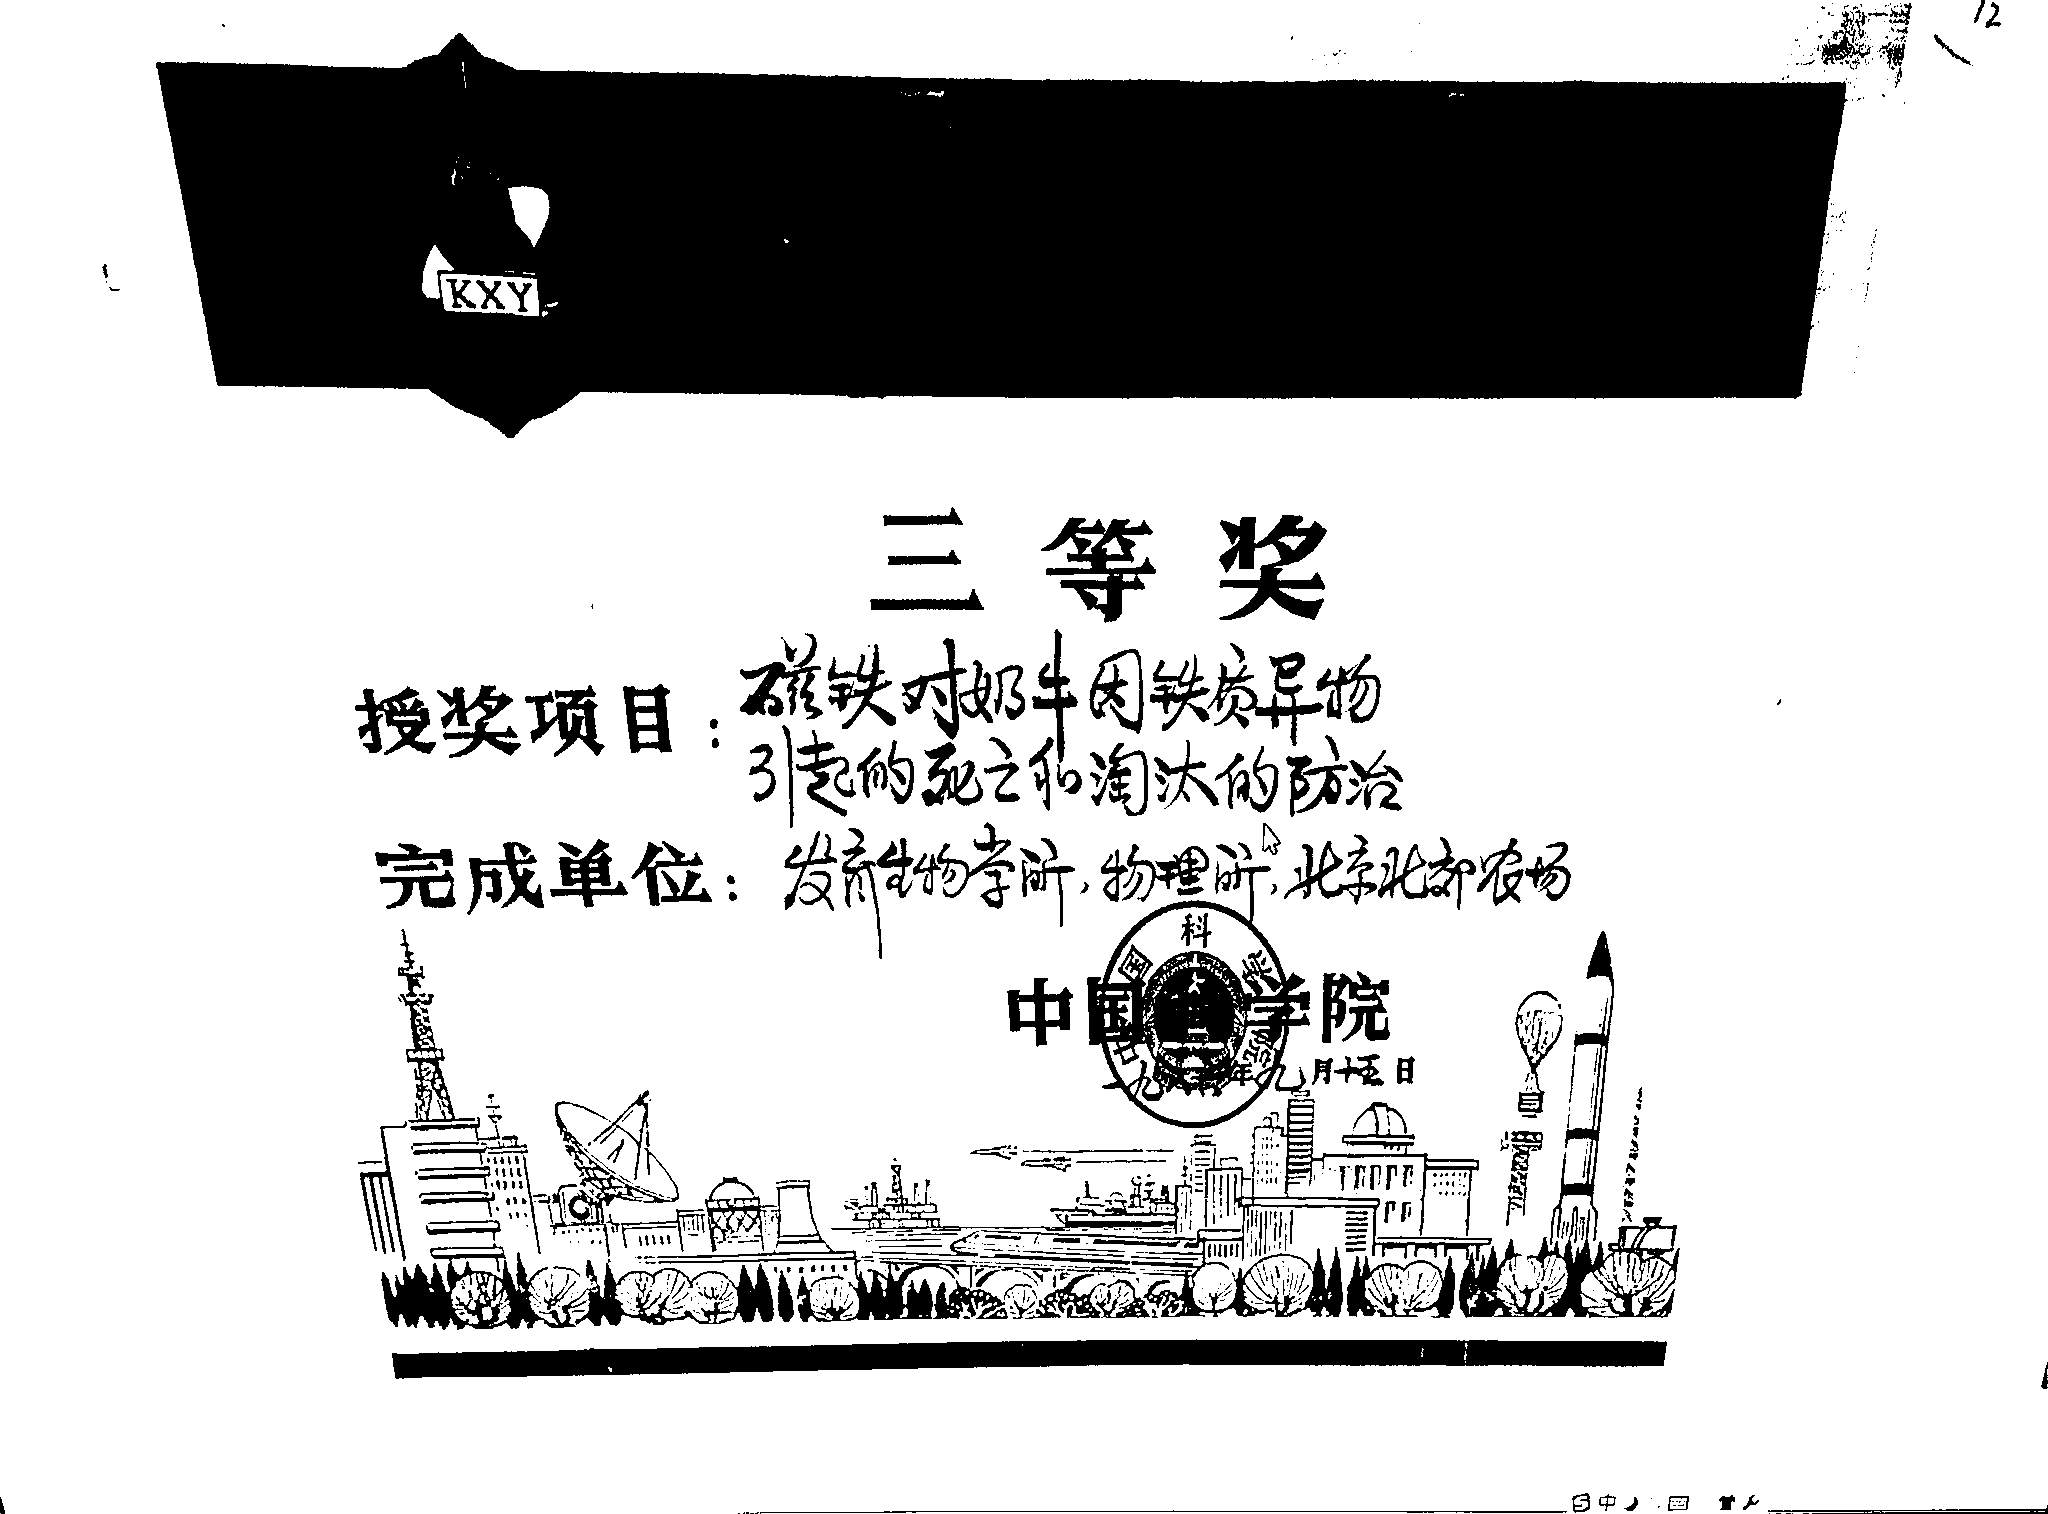 12
KXY
三等奖
授奖项目：磁铁对奶牛因铁质异物
引起的死亡和淘汰的防治
完成单位：发育生物学所，物理所，北京北郊农场
中国 学院
年九月十五日
中